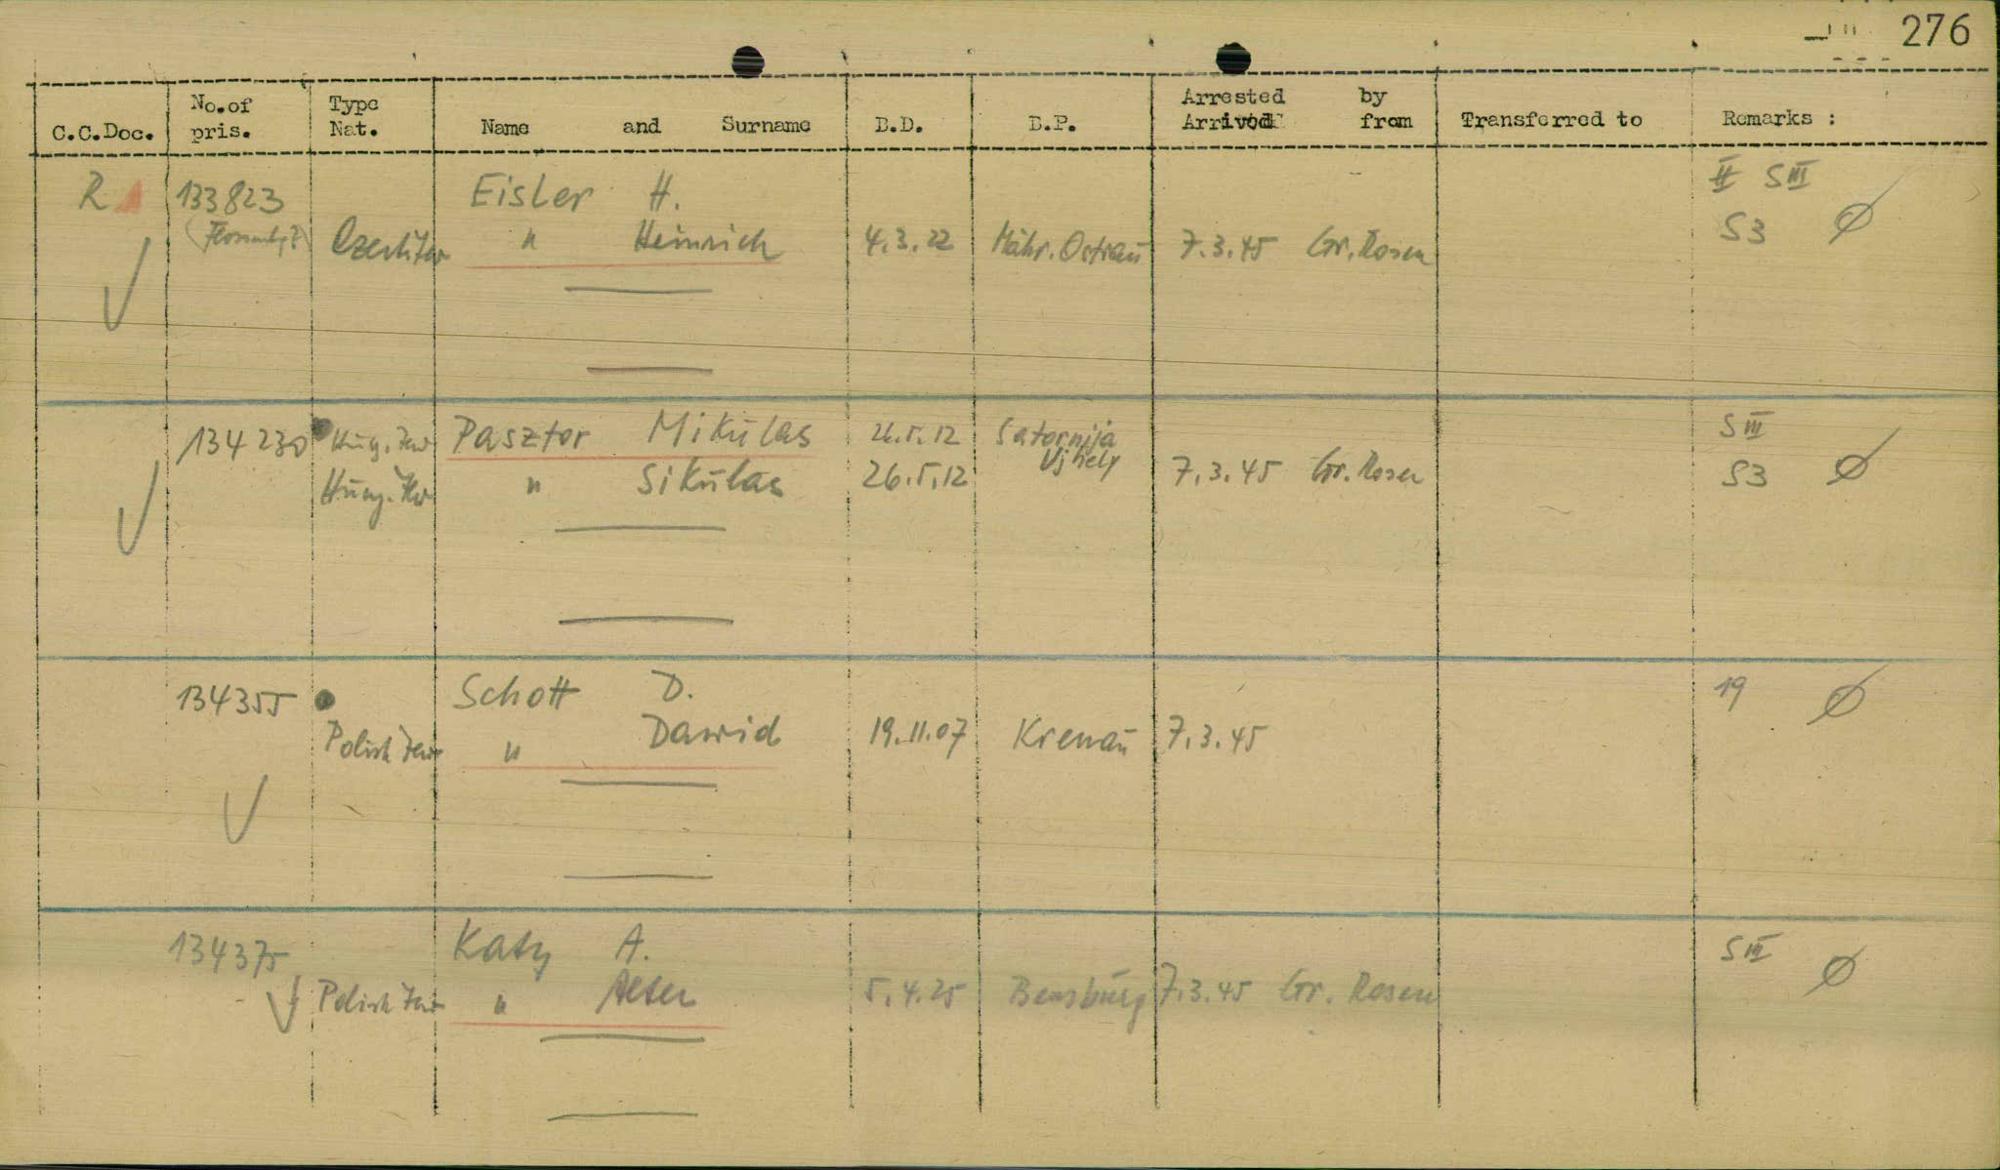 276
C.C.Doc. No.of pris. Type Nat. Name and Surname B.D. B.P. Arrested by Arrived from Transferred to Remarks :
R 133823 Eisler H. II SIII
" Heinrich 4.3.22 Mähr. Ostrau 7.3.45 Gr. Rosen S3
134230 Hung. Jew Pasztor Mikulas 26.5.12 Satornija Ujhely SIII
Hung. Jew " Sikulas 26.5.12 7.3.45 Gr. Rosen S3
134355 Schott D. 19
Polish Jew " Dawid 19.11.07 Krenau 7.3.45
134375 Katz A. SIII
Polish Jew " Alter 5.4.25 Bensburg 7.3.45 Gr. Rosen